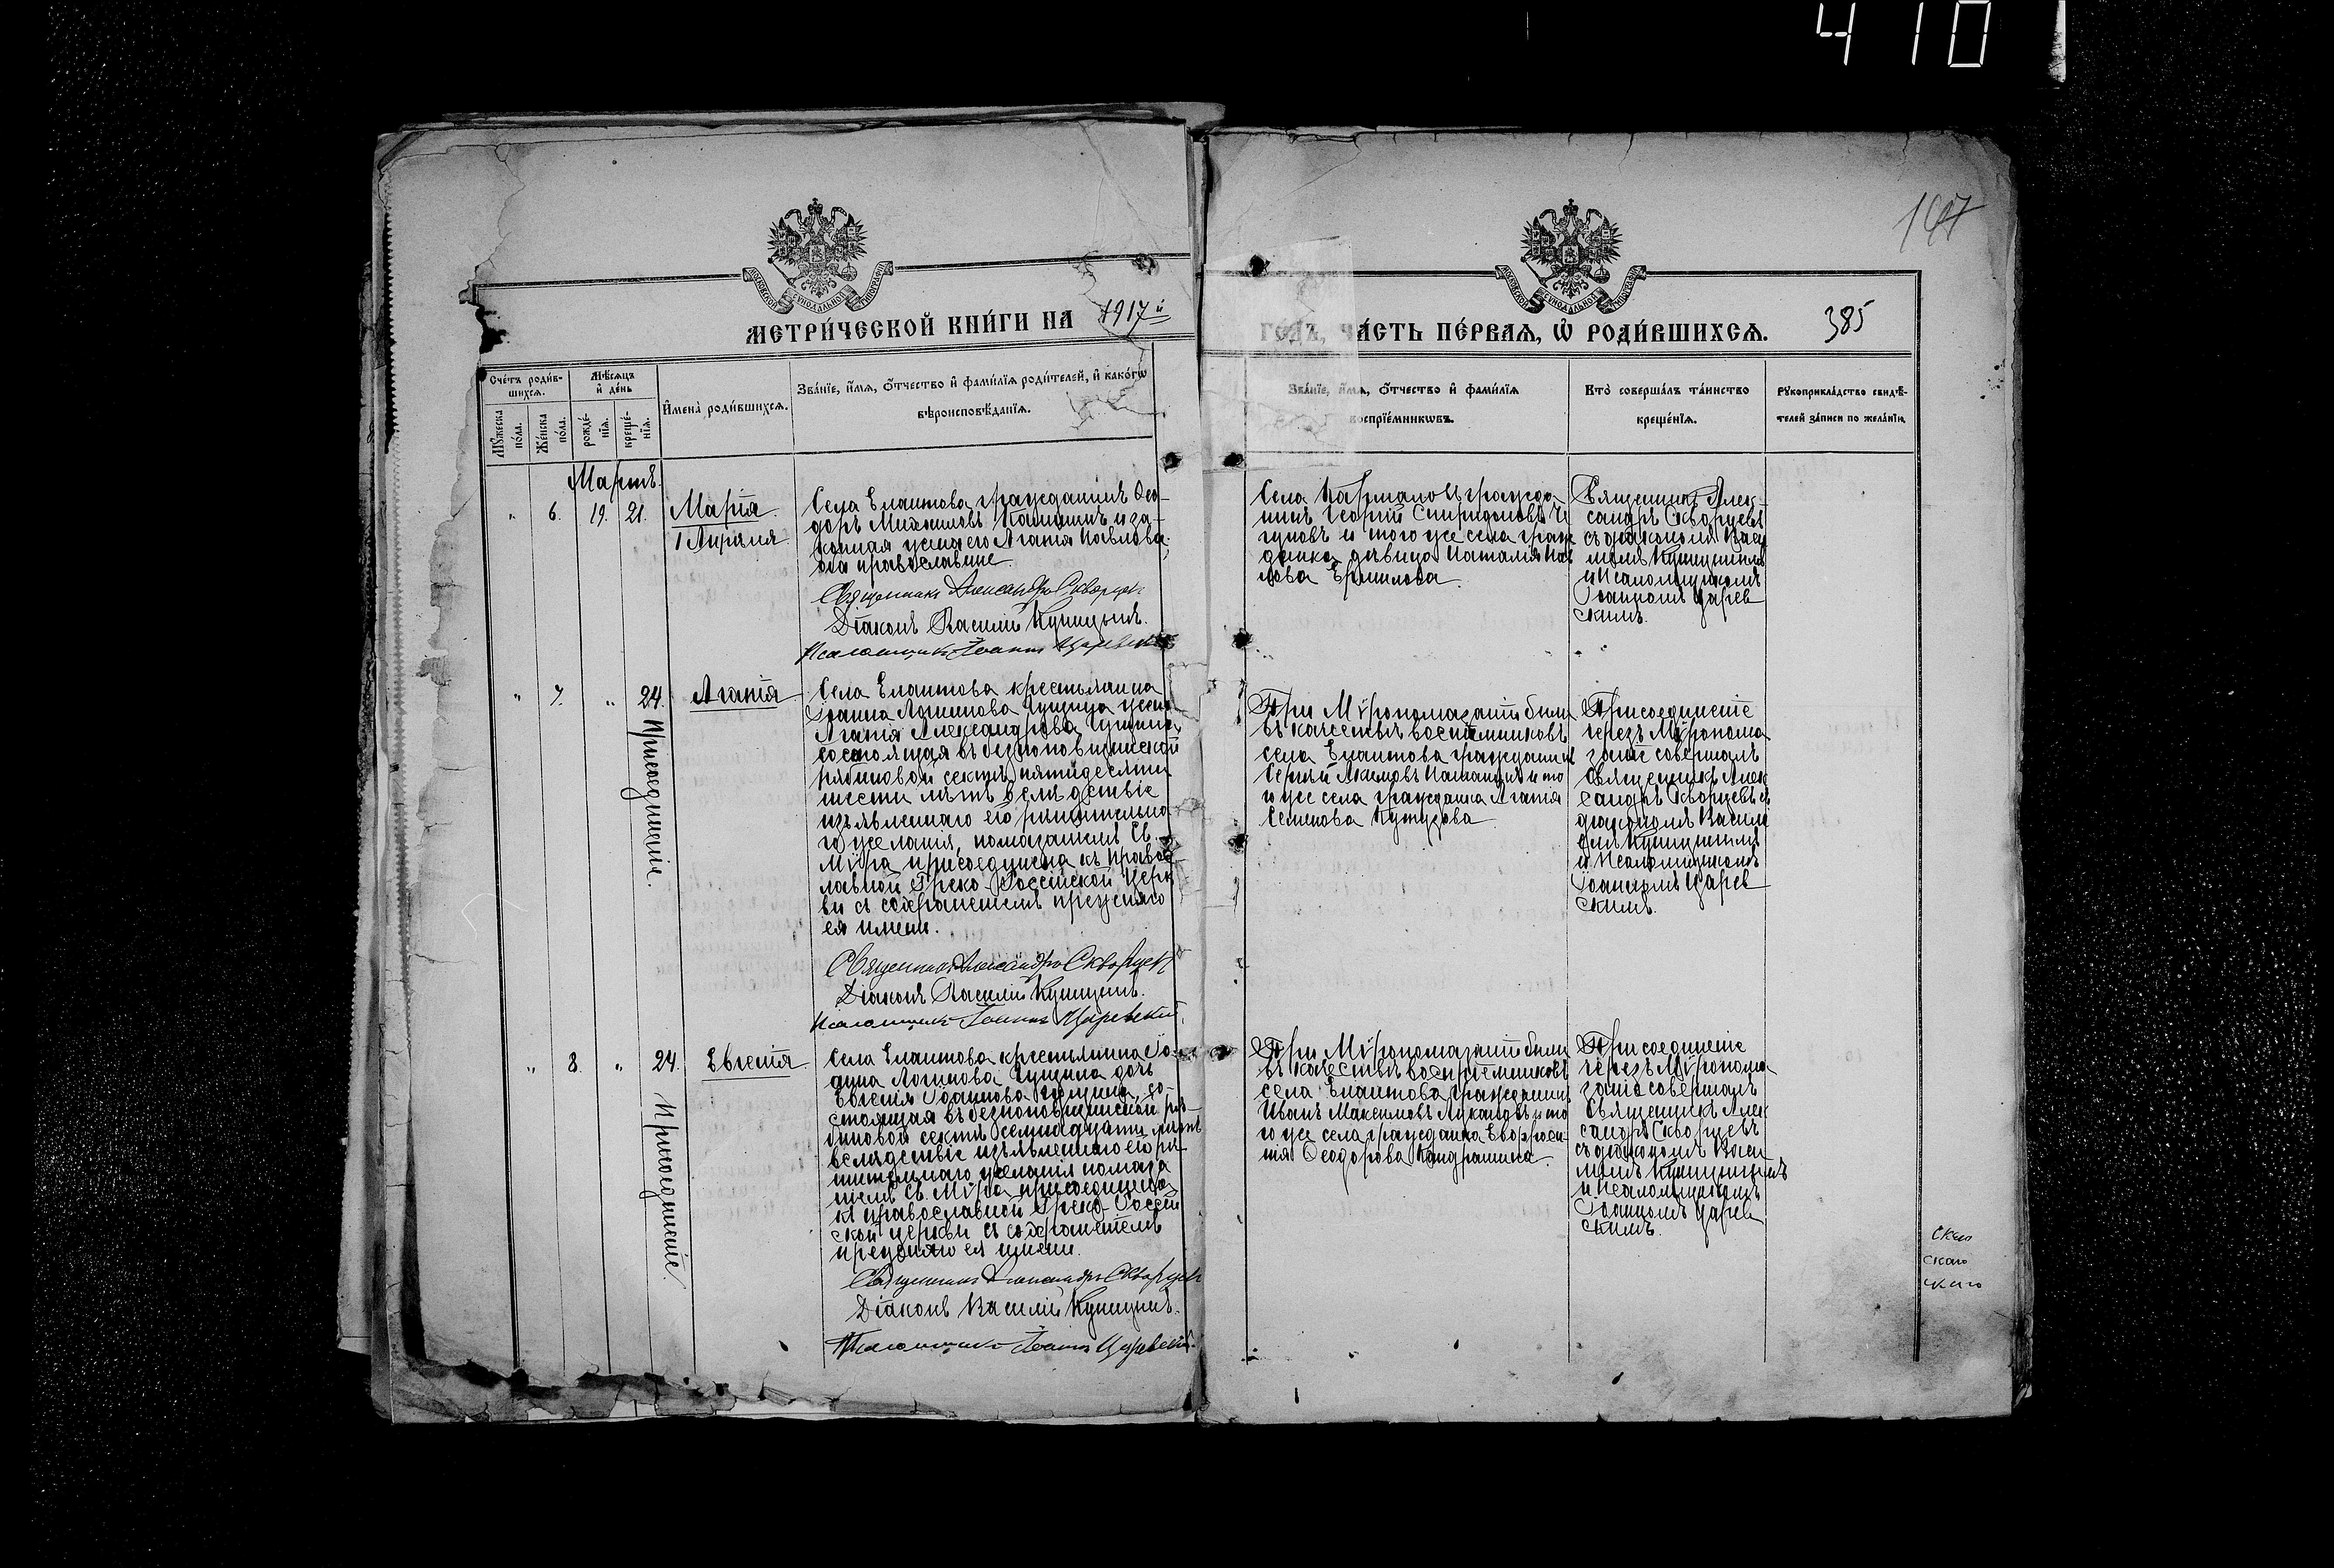 410
147
МЕТРИ́ЧЕСКОЙ КНИ́ГИ НА 1917й
ГО́ДЪ, ЧА́СТЬ ПЕ́РВАЯ, Ѡ РОДИ́ВШИХСЯ.
385
Сче́тъ роди́в-
шихся.
Мѣ́сяцъ
и҆ де́нь
Мꙋ́жеска
по́ла.
Же́нска
по́ла.
рожде́-
нія.
креще́-
нія.
И҆мена̀ роди́вшихся.
Зва́ніе, и҆́мя, ѻ҆́тчество и҆ фами́лїя роди́телей, и҆ како́гѡ
вѣроисповѣ́данїя.
Зва́ніе, и҆́мя, ѻ҆́тчество и҆ фами́лїя
воспрїе́мникѡвъ.
Кто̀ соверша́лъ та́инство
креще́нїя.
Рꙋкоприкла́дство свидѣ́-
телей за́писи по жела́нїю.
Мартъ.
" 6. 19. 21.
Марія
1 Апрѣля
Села Елаптова гражданинъ Ѳео-
доръ и за-
конная жена его Агапія Павлова,
оба православные.
Священникъ Александръ Скворцевъ
Діаконъ Василій Куницынъ.
Псаломщикъ Іоаннъ Царевскій
Села гражда
нинъ Георгій Спиридоновъ Че
гуновъ и того же села граж
данка дѣвица Наталія Пав
лова Ермилова.
Священникъ Алек-
сандръ Скворцевъ
съ діакономъ Васи
ліемъ Куницынымъ
и Псаломщикомъ
Іоанномъ Царев
скимъ.
" 7. " 24.
Присоединеніе.
Агапія
Села Елаптова крестьянина
Іоанна Логинова Гущина жена
Агапія Александрова Гущина,
состоящая въ безпоповщинской
рябиновой сектѣ, пятидесяти
шести лѣтъ вслѣдствіе
изъявленнаго ею рѣшительна
го желанія, помазаніемъ Св.
Мѵра присоединена къ правос
лавной Греко-Россійской Церк
ви съ сохраненіемъ прежняго
ея имени.
Священникъ Александръ Скворцевъ
Діаконъ Василій Куницынъ.
Псаломщикъ Іоаннъ Царевскій.
При Мѵропомазаніи были
въ качествѣ воспріемниковъ
села Елаптова гражданинъ
Сергѣй Акимовъ и то
го же села гражданка Агапія
Семенова Кутузова.
Присоединеніе
чрезъ Мѵропома
заніе совершалъ
Священникъ Алек
сандръ Скворцевъ съ
діакономъ Васил
емъ Куницынымъ
и Псаломщикомъ
Іоанномъ Царев
скимъ.
" 8. " 24.
Присоединеніе.
Евгенія
Села Елаптова крестьянина Іо-
анна Логинова Гущина дочь
Евгенія Іоаннова Гущина, со-
стоящая въ безпоповщинской ря-
биновой сектѣ семнадцати лѣтъ
вслѣдствіе изъявленнаго ею рѣ-
шительнаго желанія помаза
ніемъ Св. Мѵра присоединена
къ православной Греко-Россій
ской церкви съ сохраненіемъ
прежняго ея имени.
Священникъ Александръ Скворцевъ
Діаконъ Василій Куницынъ.
Псаломщикъ Іоаннъ Царевскій.
При Мѵропомазаніи были
въ качествѣ воспріемниковъ
села Елаптова гражданинъ
Иванъ Максимовъ и то
го же села гражданка Евфроси-
нія Ѳеодорова Кондрашина.
Присоединеніе
чрезъ Мѵропома-
заніе совершалъ
Священникъ Алек
сандръ Скворцевъ
съ діакономъ Васи
ліемъ Куницынымъ
и Псаломщикомъ
Іоанномъ Царев
скимъ.
скаго